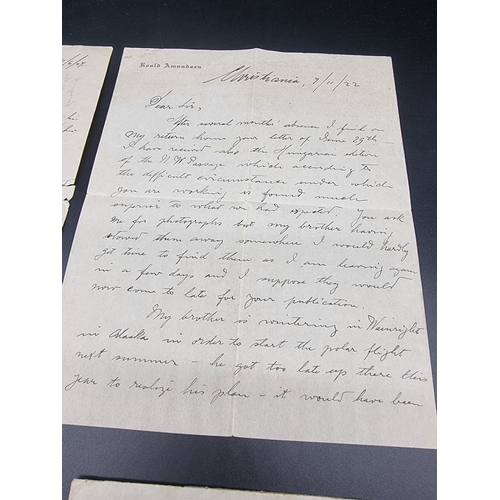 Roald Amundsen
Christiania, 7/11/22
Dear Sir,
After several months' absence I find on
my return home your letter of June 29th.
I have received also the Hungarian edition
of the N.W. Passage which according to
the difficult circumstance under which
you are working is found much
superior to what we had expected. You ask
me for photographs but my brother having
stowed them away somewhere I would hardly
get time to find them as I am leaving again
in a few days and I suppose they would
now come to late for your publication.
My brother is wintering in Wainright
in Alaska in order to start the polar flight
next summer - he got too late up there this
year to realize his plan - it would have been